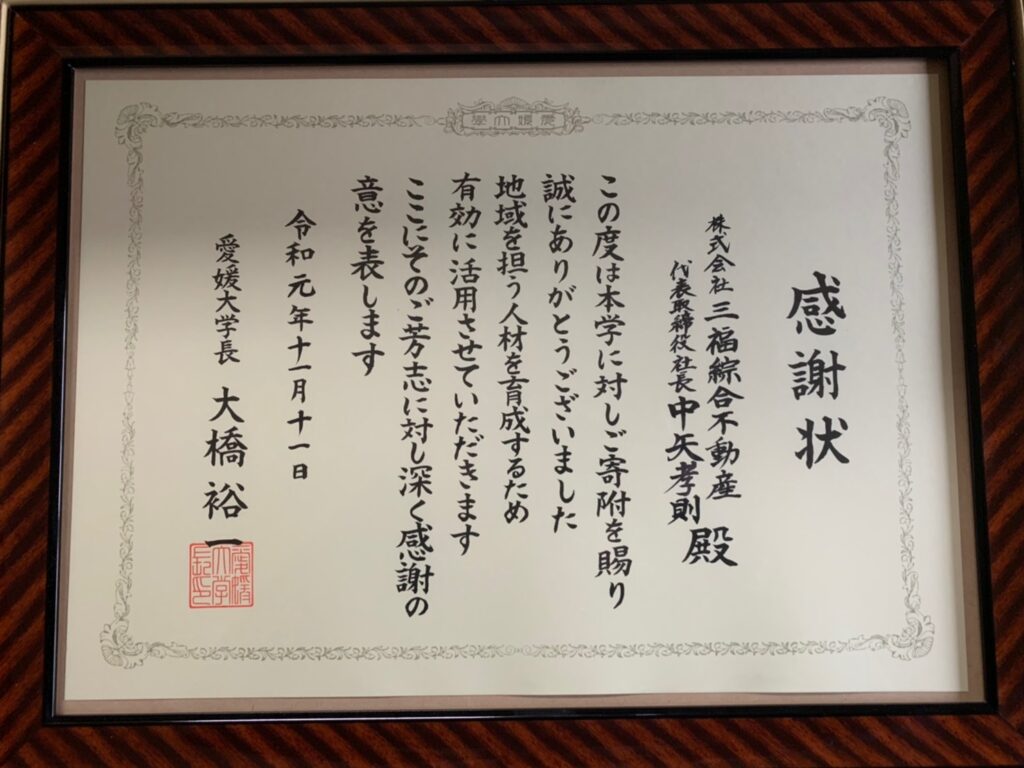 愛媛大學
感謝状
株式会社 三福綜合不動産
代表取締役社長 中矢孝則 殿
この度は本学に対しご寄附を賜り
誠にありがとうございました
地域を担う人材を育成するため
有効に活用させていただきます
ここにそのご芳志に対し深く感謝の
意を表します
令和元年十一月十一日
愛媛大学長 大橋裕一
愛媛大学長印